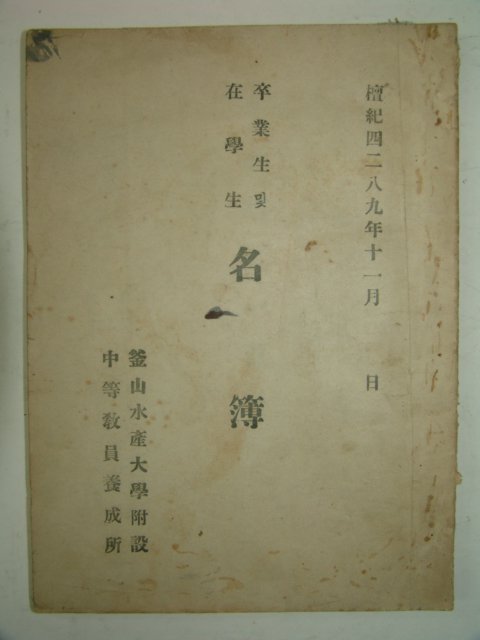 檀紀四二八九年十一月 日
卒業生 및
在學生
名簿
釜山水產大學附設
中等敎員養成所